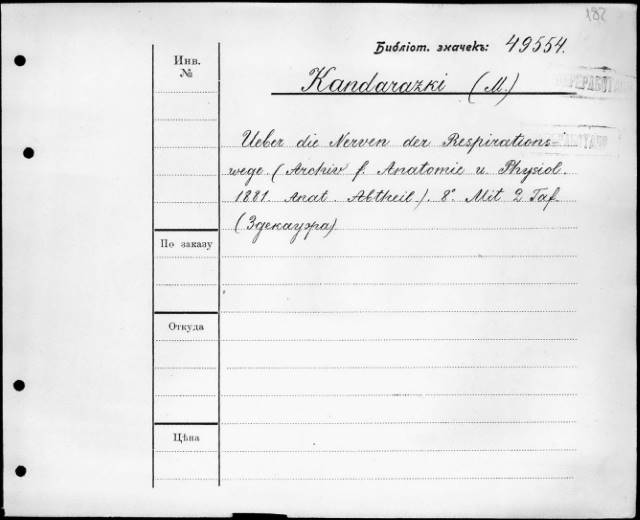 182
Библіот. значекъ: 49554.
Инв.
№
Kandarazki (M.)
ПЕРЕРАБОТАНО
Ueber die Nerven der Respirations
wege. (Archiv f. Anatomie u. Physiol.
1881. Anat. Abtheil.). 8°. Mit 2 Taf.
(Здекауэра)
По заказу
Откуда
Цѣна